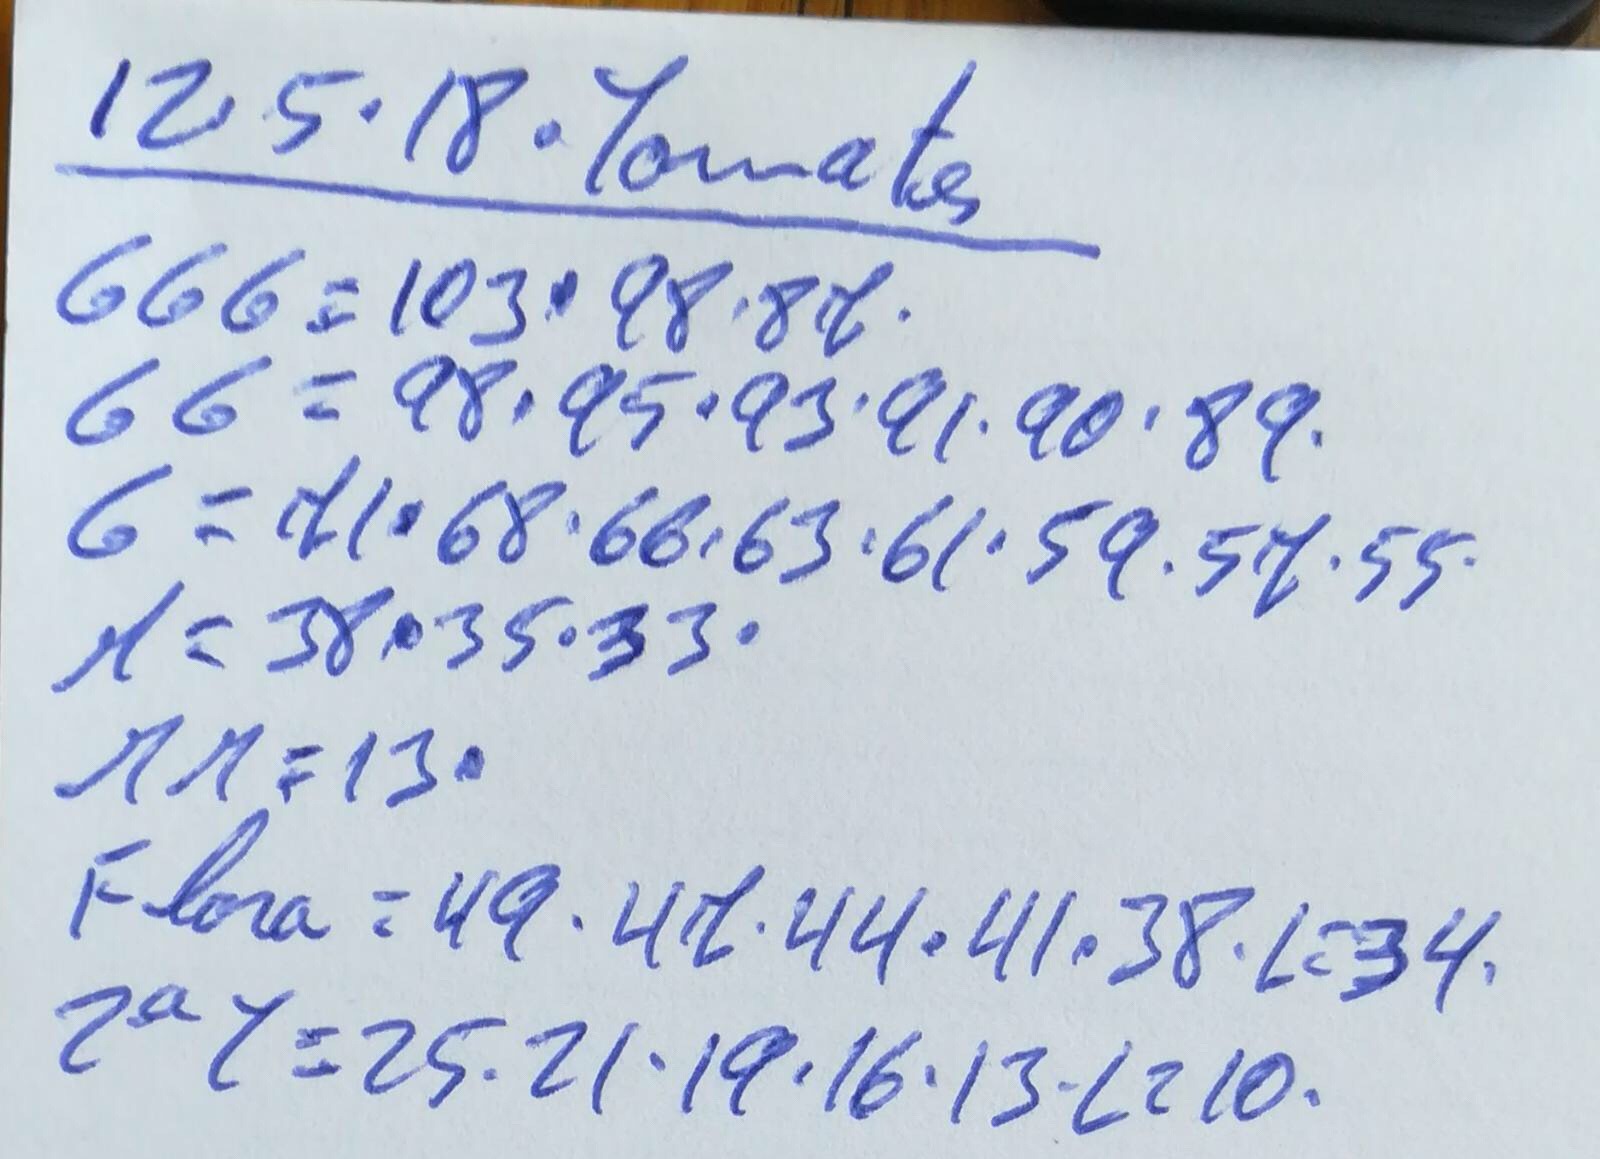 12.5.18. Tomates
GGG = 103. 98. 87.
GG = 98. 95. 93. 91. 90. 89.
G = 71. 68. 66. 63. 61. 59. 57. 55.
M = 38. 35. 33.
MM = 13.
Flora = 49. 47. 44. 41. 38. L = 34.
2ª T = 25. 21. 19. 16. 13. L = 10.